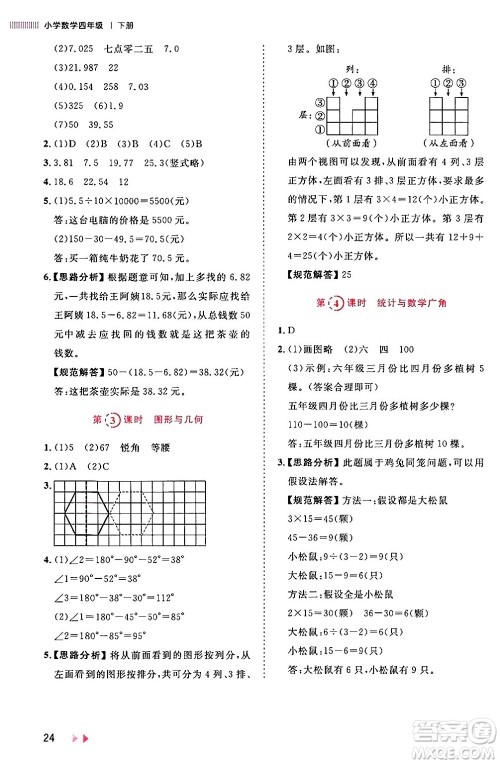 小学数学四年级 | 下册
(2)7.025 七点零二五 7.0
(3)20.87 20.9
(4)365.4 365.40
(5)325 (6)9.9
(7)50 39.55
2.(1)B (2)D (3)A (4)C (5)A
3.3.81 7.5 4.97 25.3(竖式略)
4.18.6 23.94 12
5.(1)5.5÷10×10000=5500(元)
答:这台电脑的价格是 5500 元。
(2)150-30-49.5=70.5(元)
答:买一箱纯牛奶花了 70.5 元。
6.【思路分析】根据题意可知,一共用 6.82
元找给了王阿姨 18.5 元,用 6.82
元给了王阿姨 18.5 元,所以茶壶的
王阿姨 18.5-6.82=11.68(元),再用 50
元减去 11.68 元就是这把茶壶的
钱数。
【规范解答】50-(18.5-6.82)=38.32(元)
答:这把茶壶实际是 38.32 元。
第3课时 图形与几何
1.(1)5 (2)67 锐角 等腰
2.(1)A (2)C
3.
4.(1)∠2=180°-90°-52°=38°
∠1=90°-52°=38°
(2)∠2=180°-90°-58°=32°
∠1=90°-58°=32°
5.【思路分析】将从前面看到的图形按列分,
从左面看到的图形按排分,一共 4 列、3 排、
3 层。
列: 排:
① ② ③ ④ ① ② ③
③
层: ②
①
(从前面看) (从左面看)
由两个视图可以发现,从前面看有 4 列、3 层
正方体,从左面看有 3 排、3 层正方体。最多
的情况下,第 1 层有 4×3=12(个)小正方体,
第 2 层有 3×3=9(个)小正方体,第 3 层有
2×2=4(个)小正方体。所以一共有 12+9+
4=25(个)小正方体。
【规范解答】25
第4课时 统计与数学广角
1.D
2.(1)画图略 (2)六 四 100
(3)示例:六年级三月份比四月份多植树
五年级四月份比三月份多植树多少棵?
110-100=10(棵)
答:五年级四月份比三月份多植树 10 棵。
3.【思路分析】此题属于鸡兔同笼问题,可以用
假设法解答。
【规范解答】方法一:假设都是大松鼠
3×15=45(颗) 45-36=9(颗)
小松鼠:9÷(3-2)=9(只)
大松鼠:15-9=6(只)
方法二:假设全是小松鼠
2×15=30(颗) 36-30=6(颗)
大松鼠:6÷(3-2)=6(只)
小松鼠:15-6=9(只)
答:大松鼠有 6 只,小松鼠有 9 只。
24